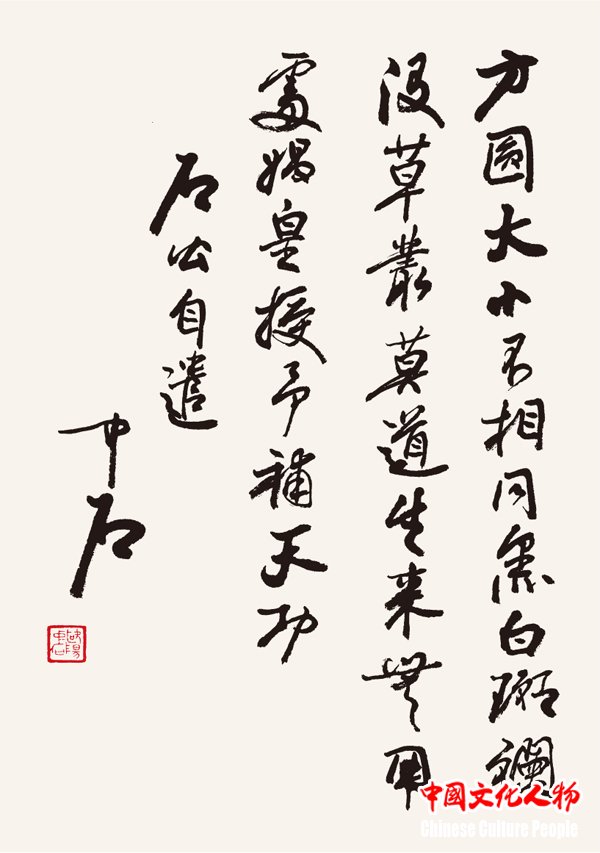 方圓大小不相同黑白斑斕
没草叢莫道生来無用
處媧皇授予補天功
石公自遣
中石
中國文化人物
Chinese Culture People